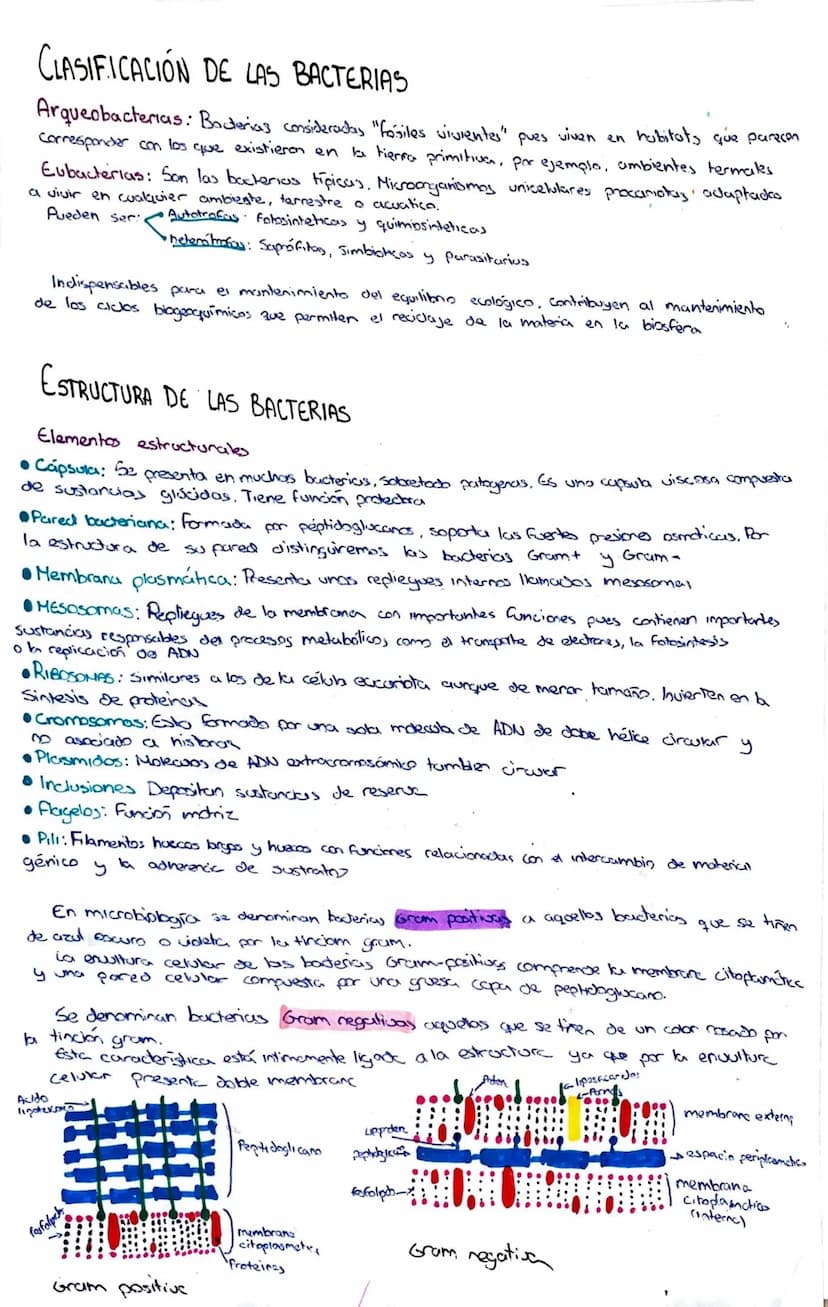 CLASIFICACIÓN DE LAS BACTERIAS
Arqueobacterias: Bacterias consideradas "fósiles vivientes" pues viven en habitats que parecen
corresponder con los que existieron en la tierra primitiva, por ejemplo, ambientes termales
Eubacterias: Son las bacterias típicas. Microorganismos unicelulares procariotas, adaptados
a vivir en cualquier ambiente, terrestre o acuatico.
Pueden ser: Autotrofas: fotosinteticas y quimiosinteticas
heterótrofas: Saprófitas, Simbioticas y parasitarias
Indispensables para el mantenimiento del equilibrio ecológico, contribuyen al mantenimiento
de los ciclos biogeoquímicos que permiten el reciclaje de la materia en la biosfera
ESTRUCTURA DE LAS BACTERIAS
Elementos estructurales
• Cápsula: Se presenta en muchas bacterias, sobretodo patogenas. Es una capsula viscosa compuesta
de sustancias glúcidas. Tiene función protectora
• Pared bacteriana: Formada por péptidoglucanos, soporta las fuertes presiones osmoticas. Por
la estructura de su pared distinguiremos las bacterias Gram+ y Gram-
• Membrana plasmática: Presenta unos repliegues internos llamados mesosomas
• MESOSOMAS: Repliegues de la membrana con importantes funciones pues contienen importantes
sustancias responsables del procesos metabólico, como el transporte de electrones, la fotosintesis
o la replicación de ADN
• RIBOSOMAS: Similares a los de la célula eucariota aunque de menor tamaño. Invierten en la
Sintesis de proteinas
• Cromosomas: Esta formado por una sola molecula de ADN de doble hélice circular y
no asociado a histonas
• Plasmidos: Moleculas de ADN extracromosómico tambien circular
• Inclusiones Depositan sustancias de reserva
• Flagelos: Función motriz
• Pili: Filamentos huecos largos y huecos con funciones relacionadas con el intercambio de material
génico y la adherencia de sustratos
En microbiología se denominan bacterias Gram positivas a aquellos bacterias que se tiñen
de azul oscuro o violeta por la tinciom gram.
La envultura celular de las bacterias Gram-positivas comprende la membrana citoplamática
y una pared celular compuesta por una gruesa capa de peptidoglucano.
Se denominan bacterias Gram negativas aquellos que se tiñen de un color rosado por
la tinción gram.
Esta característica está intimamente ligada a la estructura ya que por la envultura
celular presenta doble membrana
Acido
Peptidoglicano
fosfolipi
membrana
citoplasmatica
Proteinas
Gram positiva
membrana externa
espacio periplasmatico
membrana
citoplasmática
(interna)
Gram negativa